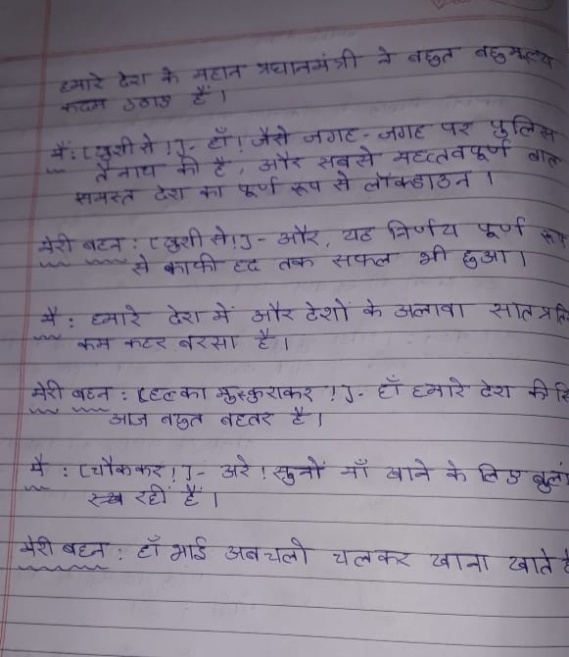 हमारे देश के महान प्रधानमंत्री ने बहुत बहुमूल्य
कदम उठाए हैं।
मैं: [खुशी से!]- हाँ! जैसे जगह-जगह पर पुलिस
तैनाय की है, और सबसे महत्वपूर्ण बात
समस्त देश का पूर्ण रूप से लॉकडाउन।
मेरी बहन: [खुशी से!]- और, यह निर्णय पूर्ण रूप
से काफी हद तक सफल भी हुआ।
मैं: हमारे देश में और देशों के अलावा सात प्रति
कम कहर बरसा है।
मेरी बहन: [हल्का मुस्कुराकर!]- हाँ हमारे देश की स्थि
आज बहुत बहतर है।
मैं: [चौककर!]- अरे! सुनों माँ खाने के लिए बुला
रहीं हैं।
मेरी बहन: हाँ भाई अब चलो चलकर खाना खाते है